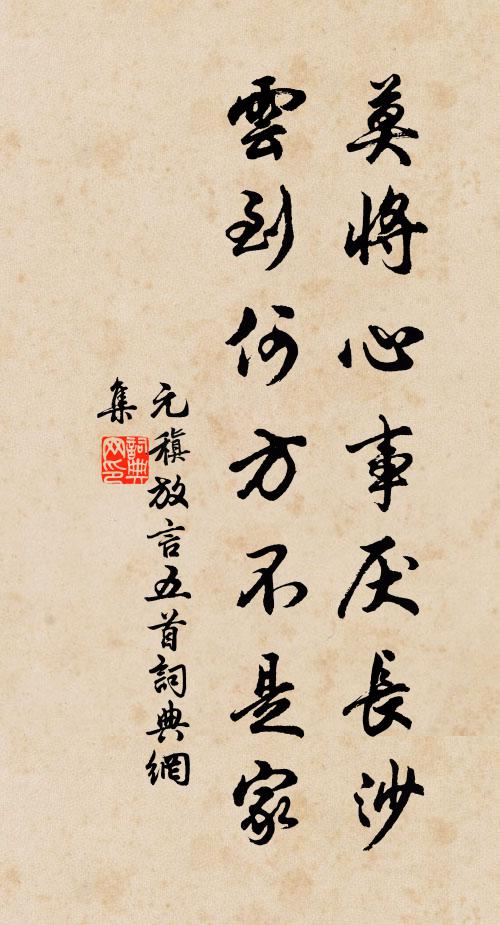 莫將心事厌長沙
雲到何方不是家
元稹放言五首詞典網
集
詞典
网印